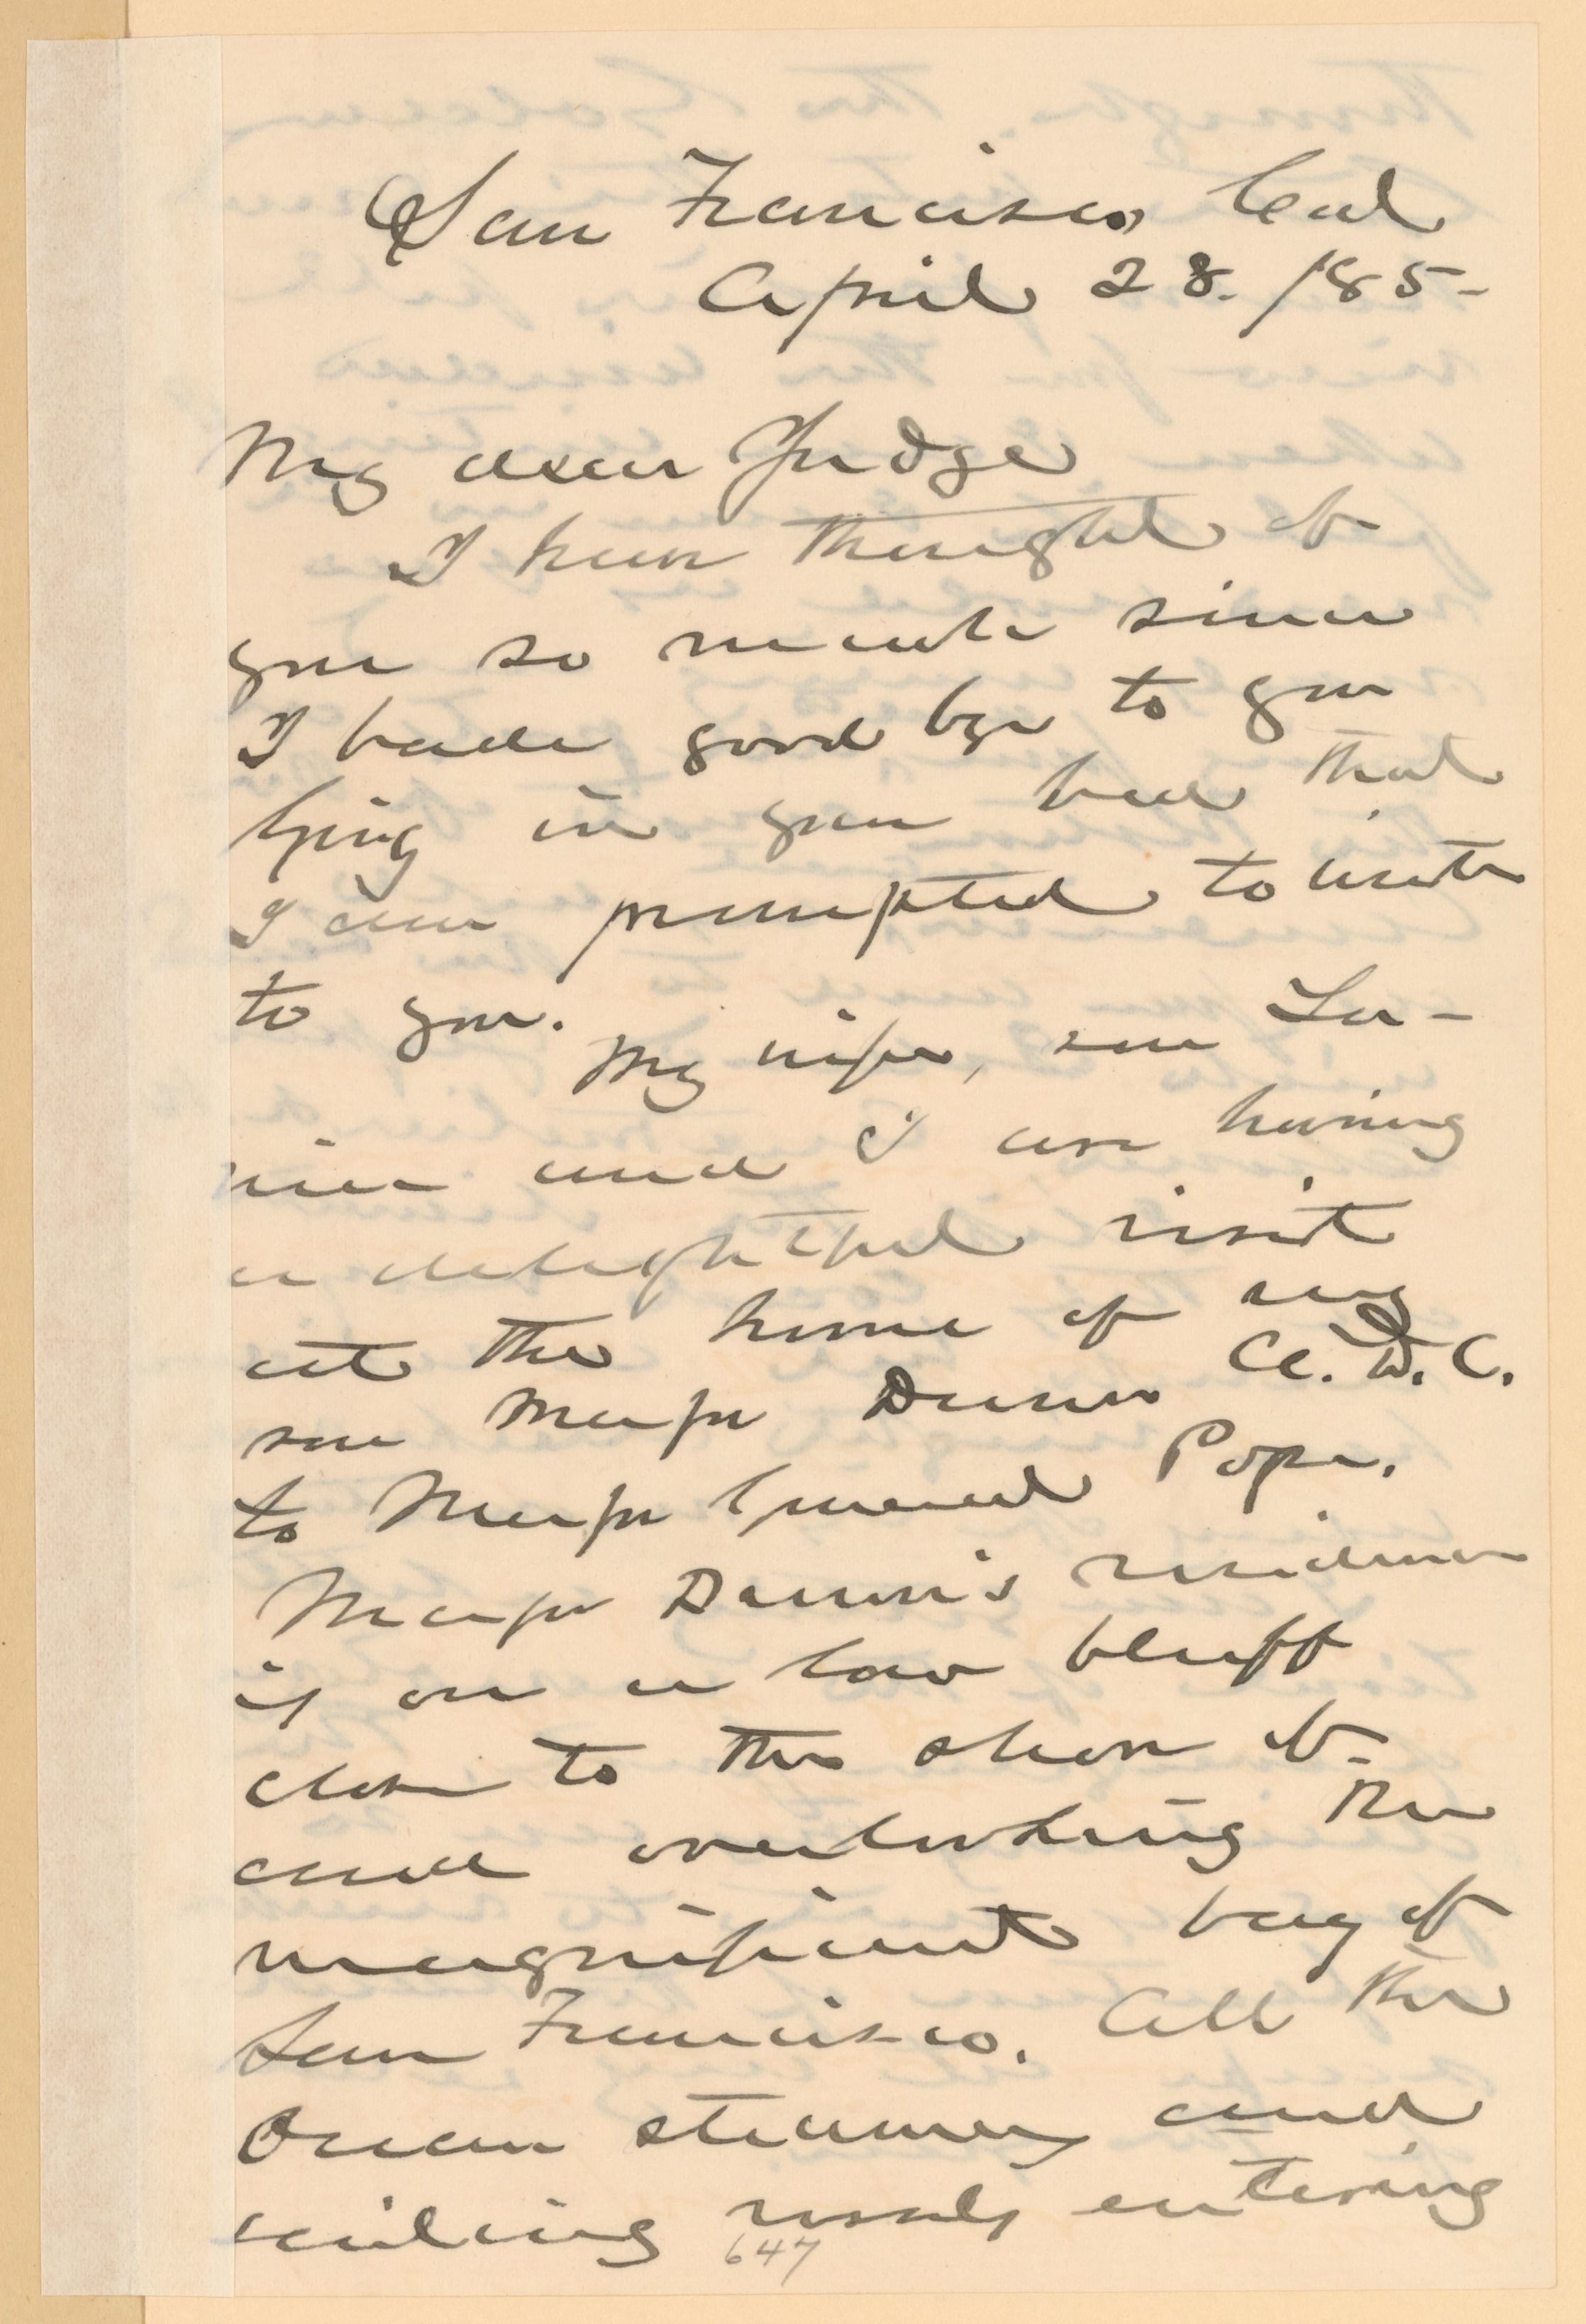 San Francisco, Cal
April 28. /85-
My dear Judge
I have thought of
you so much since
I bade good bye to you
lying in your bed that
I am prompted to write
to you.
My wife, son Lu-
cien and I are having
a delightful visit
at the home of my
son Major Dunn A. D. C.
to Major General Pope.
Major Dunn's residence
is on a low bluff
close to the shore of
and overlooking the
magnificent bay of
San Francisco. All the
Ocean steamers and
sailing vessels entering
647